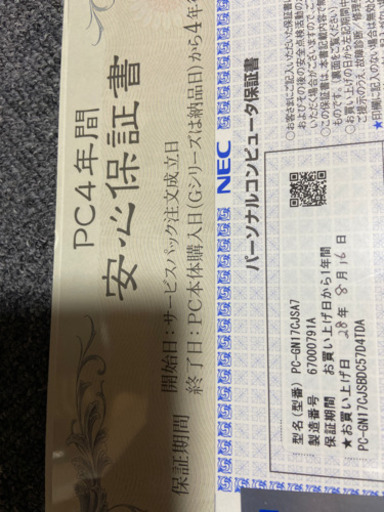 PC4年間
安心保証書
保証期間 開始日：サービスパック注文成立日
終了日：PC本体購入日(Gシリーズは納品日)から4年
NEC
パーソナルコンピュータ保証書
○お客さまにご記入いただいた保証書
およびその後の安全点検活動の
いただく場合がございますので、ご
○この保証書は、本書記載内容
ものです。裏面をご覧ください。
○お買い上げの日から左記期間中
ご提示のうえ、故障診断/修理
★印欄に記入のない場合は無効
型名(型番) PC-GN17CJSA7
製造番号 67000791A
保証期間 お買い上げ日から1年間
★お買い上げ日 28年 8月16日
PC-GN17CJSBDC57D4TDA